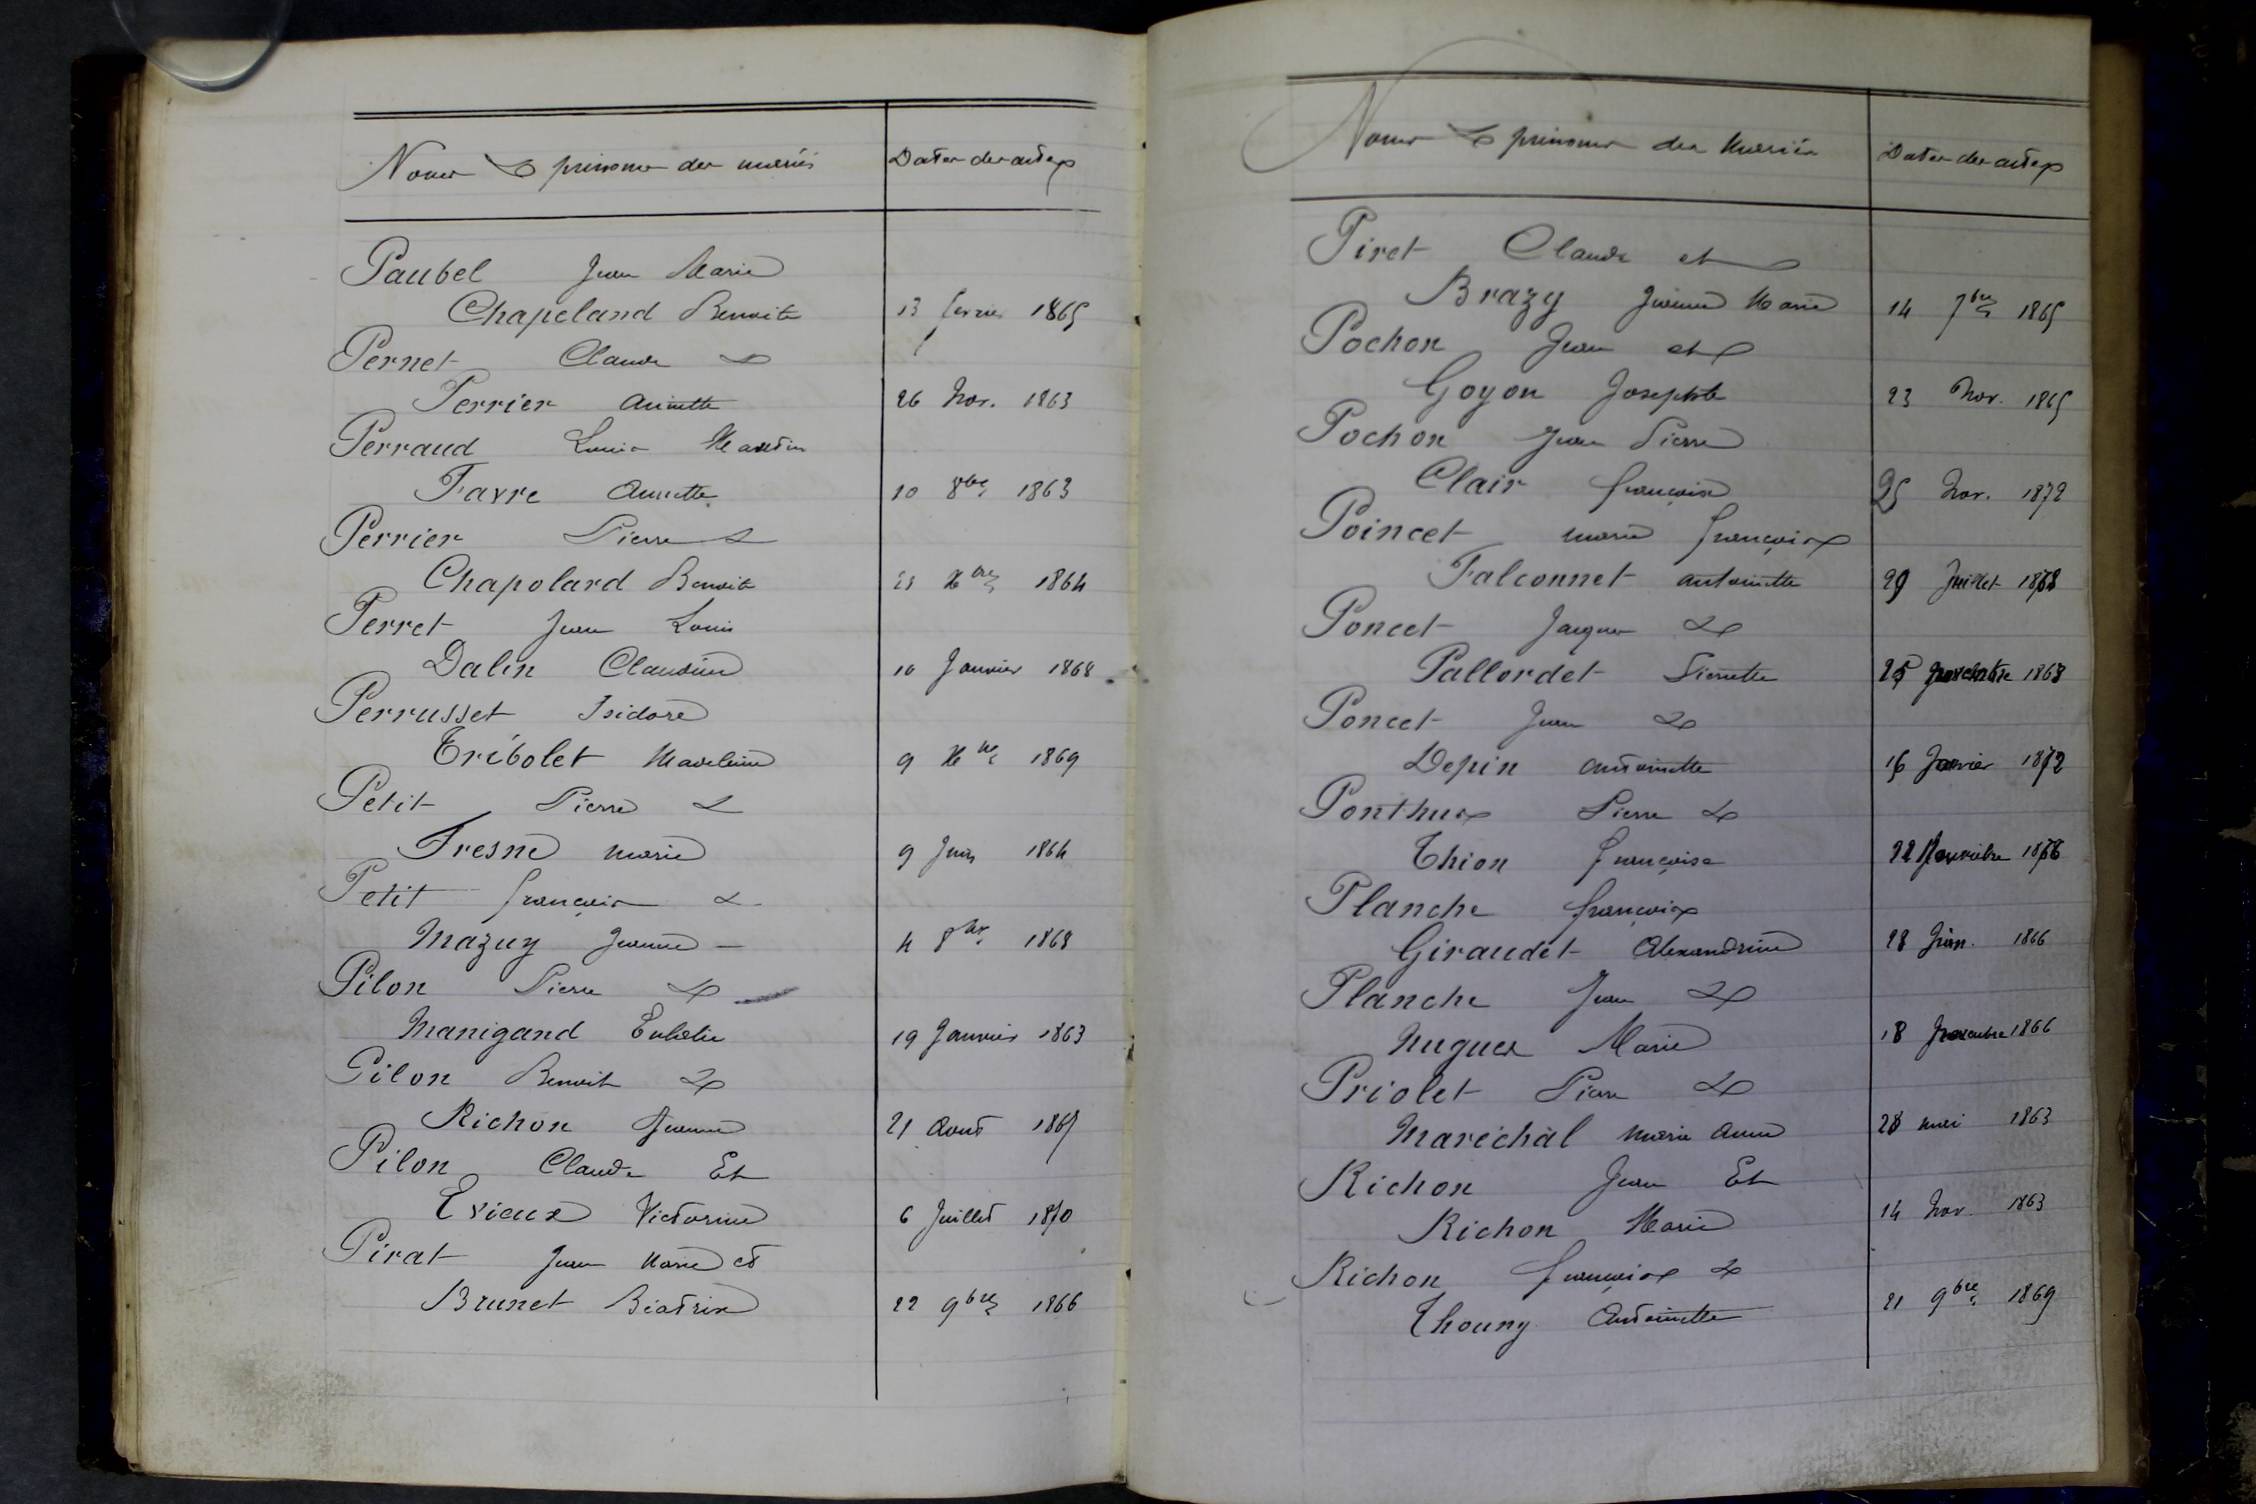 Noms & prénoms des mariés Dates des actes
Paubel Jean Marie
Chapeland Benoite 13 février 1865
Pernet Claude &
Perrier Annette 26 Nov. 1863
Perraud Louis Martin
Favre Annette 10 8bre 1863
Perrier Pierre &
Chapolard Benoite Xbre 1864
Perret Jean Louis
Dalin Claudine 10 Janvier 1868
Perrusset Isidore
Tribolet Madeleine 9 Xbre 1869
Petit Pierre &
Fresne marie 9 Juin 1864
Petit françois &
Mazuy Jeanne 4 8bre 1868
Pilon Pierre &
Manigand 19 Janvier 1863
Pilon Benoit &
Richon Jeanne 21 Aout
Pilon Claude Et
Evieux Victorine 6 Juillet 1870
Pirat Jean Marie et
Brunet Béatrix 22 9bre 1866
Noms & prénoms des mariés Dates des actes
Piret Claude et
Brazy Jeanne Marie 14 7bre 1865
Pochon Jean et
Goyon Josephte 23 Nov. 1865
Pochon Jean Pierre
Clair françoise 25 Nov. 1872
Poincet marie françois
Falconnet antoinette 29 Juillet 1868
Poncet Jacques &
Pallordet Pierrette 1868
Poncet Jean &
Depin antoinette 16 Janvier 1872
Ponthus Pierre &
Thion françoise 22
Planche françois
Giraudet Alexandrine 28 Juin 1866
Planche Jean &
Hugues Marie 18 Novembre 1866
Priolet Pierre &
Maréchal marie anne 28 mai 1863
Richon Jean Et
Richon Marie 14 Nov. 1863
Richon françois &
Thouny Antoinette 21 9bre 1869